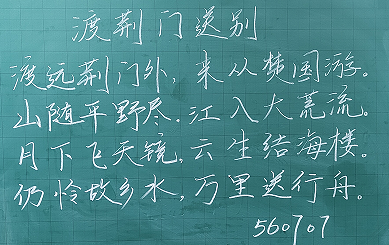 渡荆门送别
渡远荆门外，来从楚国游。
山随平野尽，江入大荒流。
月下飞天镜，云生结海楼。
仍怜故乡水，万里送行舟。
560707